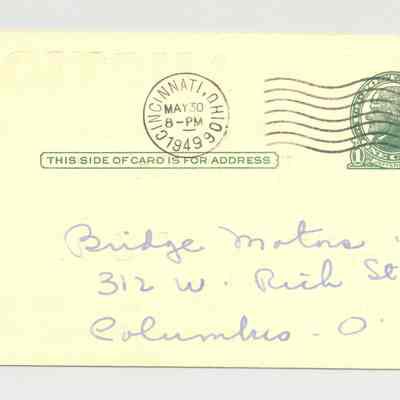 CINCINNATI, OHIO
MAY 30
8-PM
1949
THIS SIDE OF CARD IS FOR ADDRESS
Bridge Motors
312 W. Rich St
Columbus - O